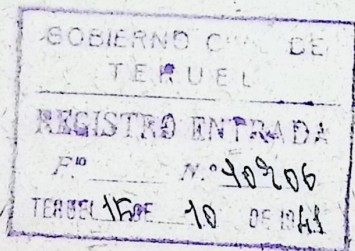 GOBIERNO CIVIL DE
TERUEL
REGISTRO ENTRADA
F.º N.º 10206
TERUEL 15 DE 10 DE 1941